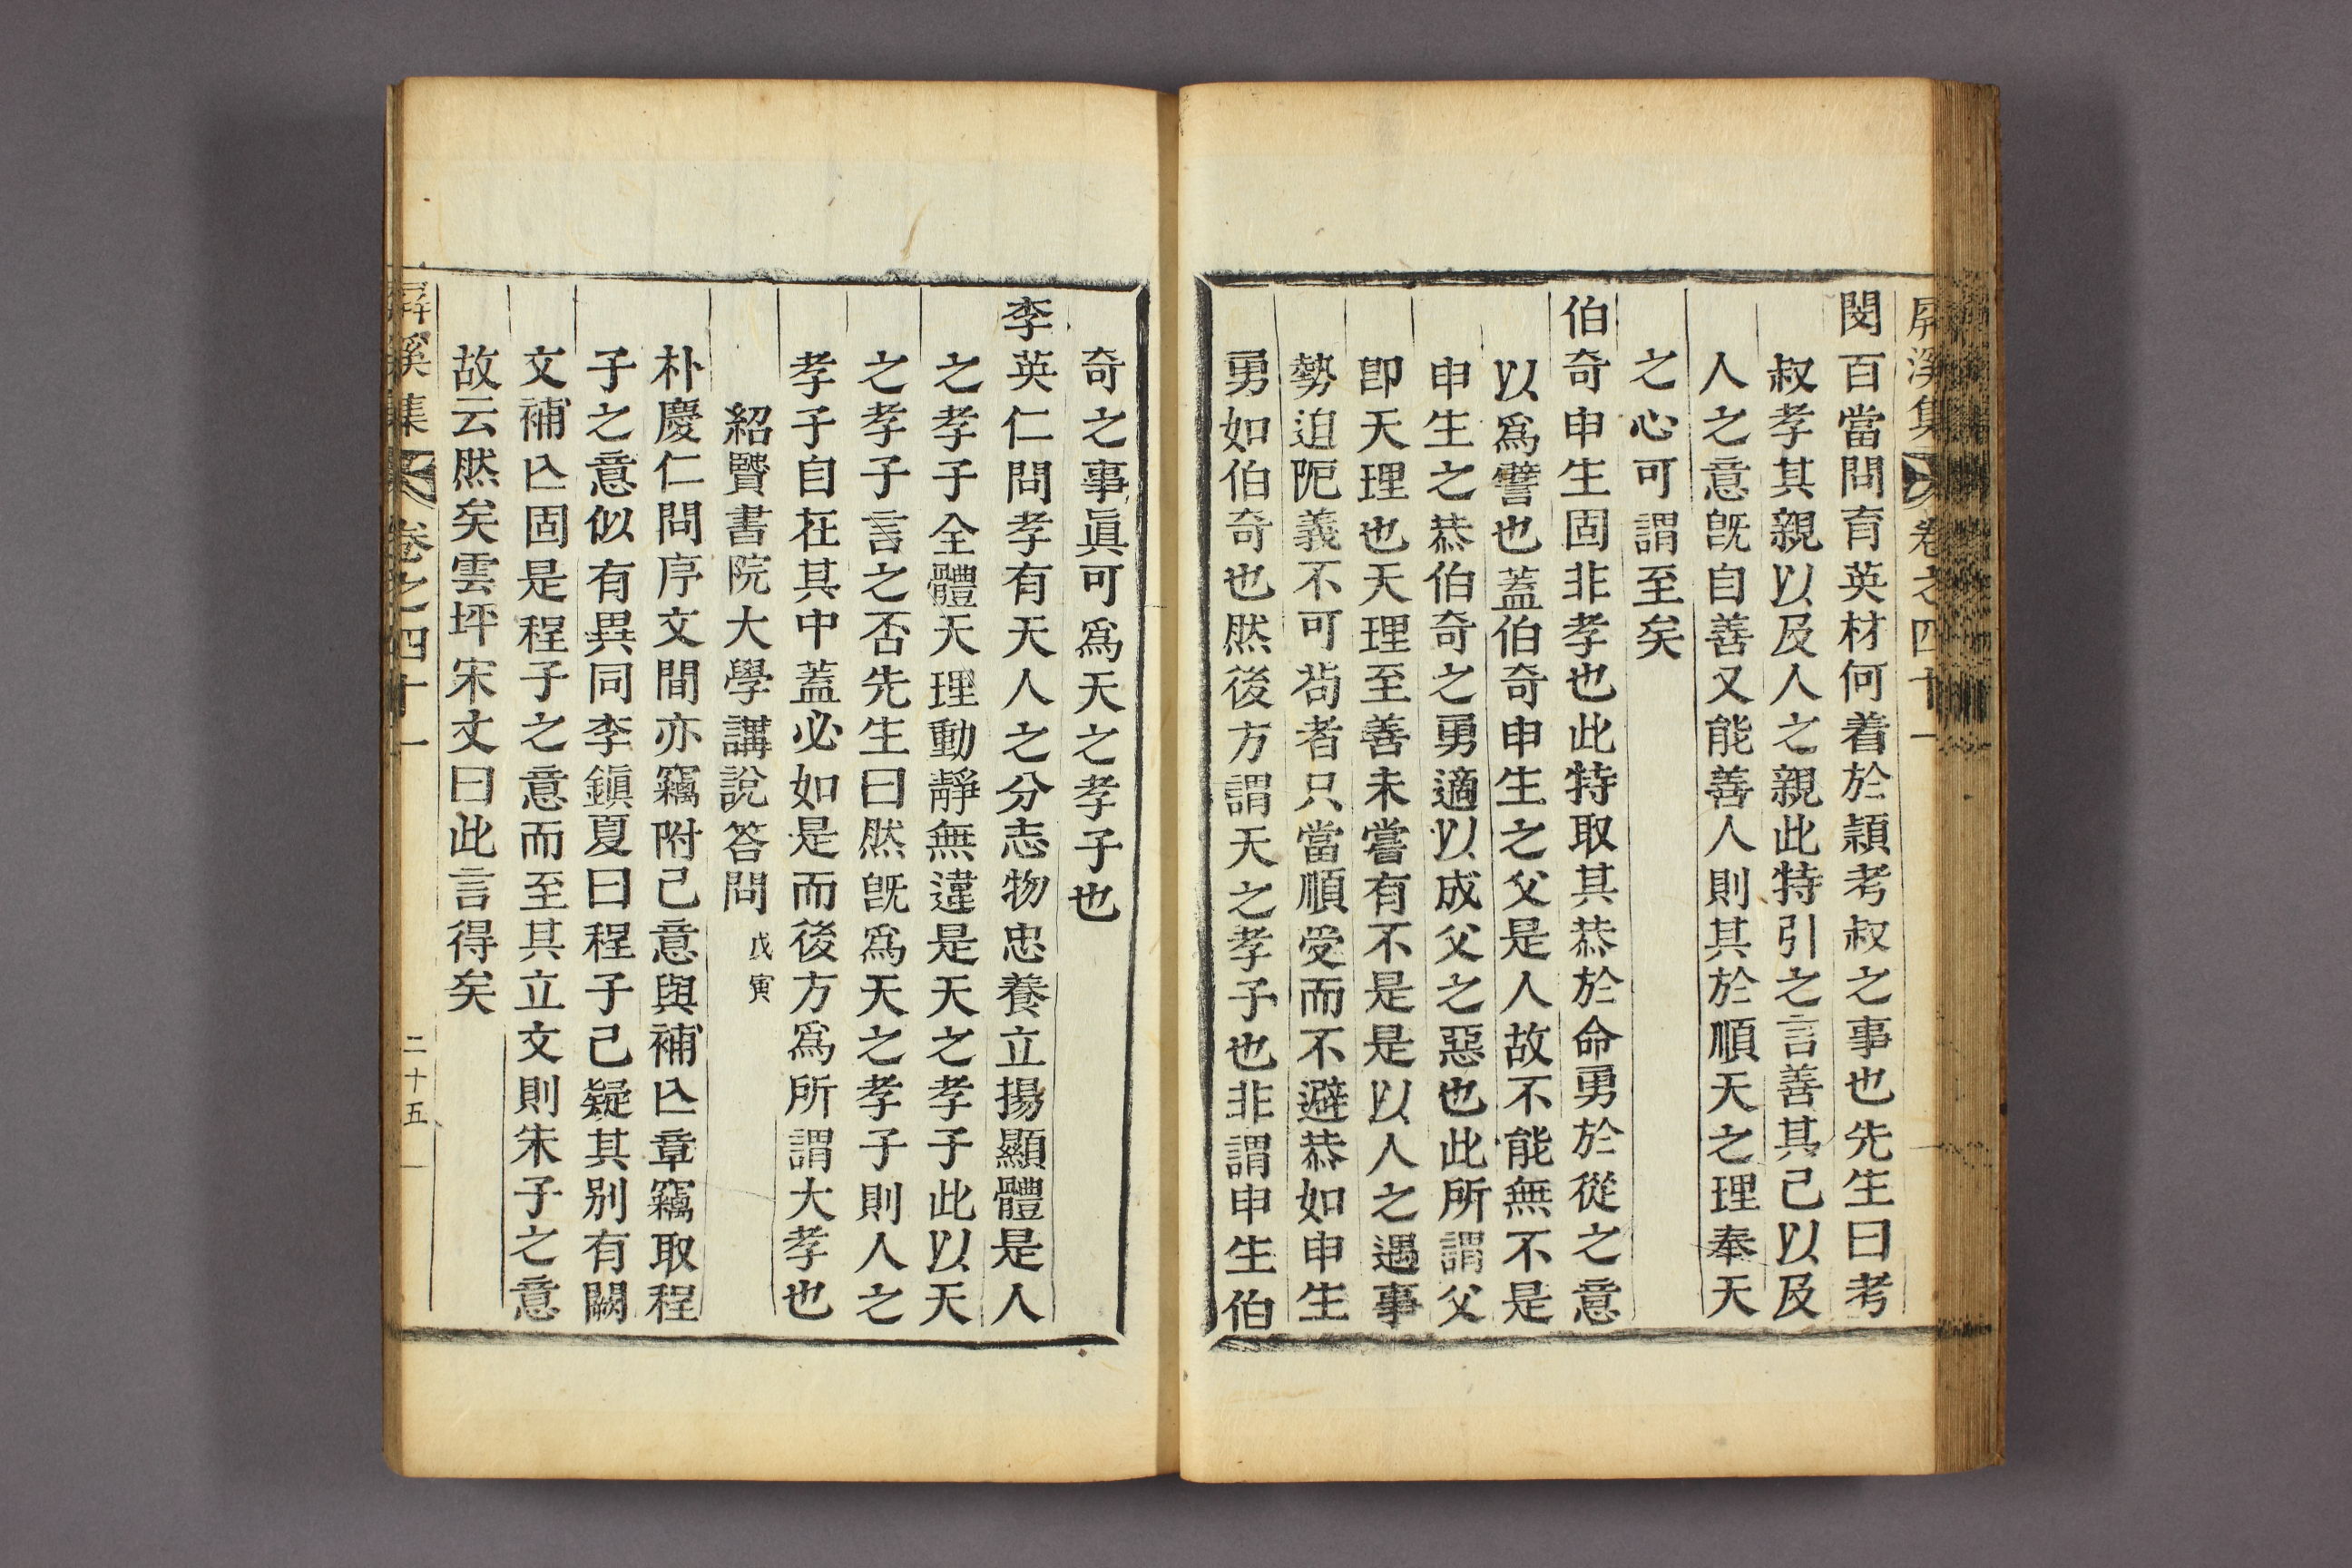 屛溪集 卷之四十一
閔百當問育英材何着於潁考叔之事也先生曰考
叔孝其親以及人之親此特引之言善其己以及
人之意旣自善又能善人則其於順天之理奉天
之心可謂至矣
伯奇申生固非孝也此特取其恭於命勇於從之意
以爲譬也蓋伯奇申生之父是人故不能無不是
申生之恭伯奇之勇適以成父之惡也此所謂父
卽天理也天理至善未嘗有不是是以人之遇事
勢迫阨義不可苟者只當順受而不避恭如申生
勇如伯奇也然後方謂天之孝子也非謂申生伯
奇之事眞可爲天之孝子也
李英仁問孝有天人之分志物忠養立揚顯體是人
之孝子全體天理動靜無違是天之孝子此以天
之孝子言之否先生曰然旣爲天之孝子則人之
孝子自在其中蓋必如是而後方爲所謂大孝也
紹賢書院大學講說答問 戊寅
朴慶仁問序文間亦竊附己意與補亡章竊取程
子之意似有異同李鎭夏曰程子己疑其別有闕
文補亡固是程子之意而至其立文則朱子之意
故云然矣雲坪宋丈曰此言得矣
屛溪集 卷之四十一 二十五